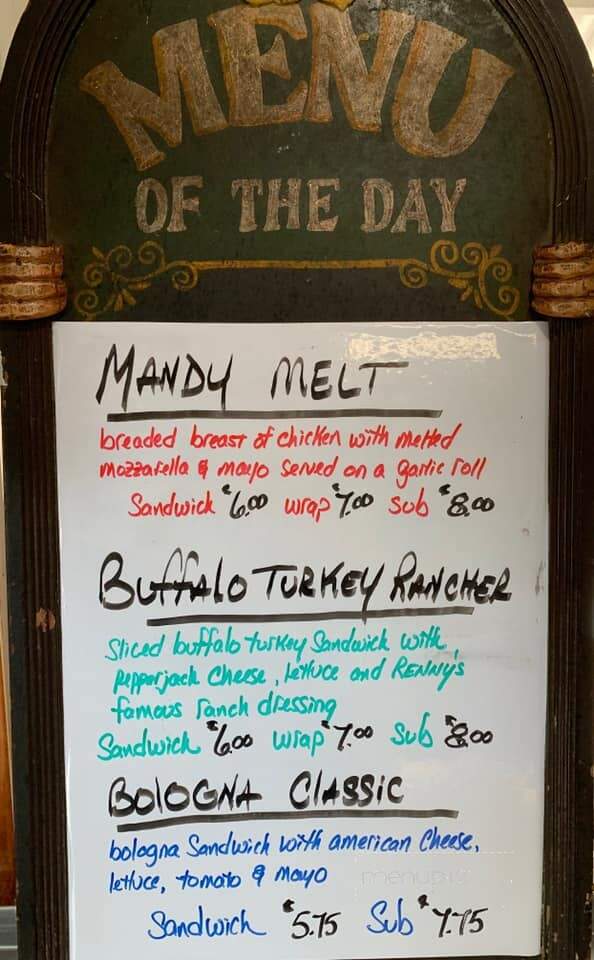 MENU
OF THE DAY
MANDY MELT
breaded breast of chicken with melted
mozzarella & mayo served on a garlic roll
Sandwich $6.00 wrap $7.00 Sub $8.00
BUFFALO TURKEY RANCHER
Sliced buffalo turkey Sandwich with
pepperjack cheese, lettuce and RENNY'S
famous ranch dressing
Sandwich $6.00 wrap $7.00 Sub $8.00
BOLOGNA CLASSIC
bologna Sandwich with american cheese,
lettuce, tomato & mayo
menupix
Sandwich $5.75 Sub $7.75